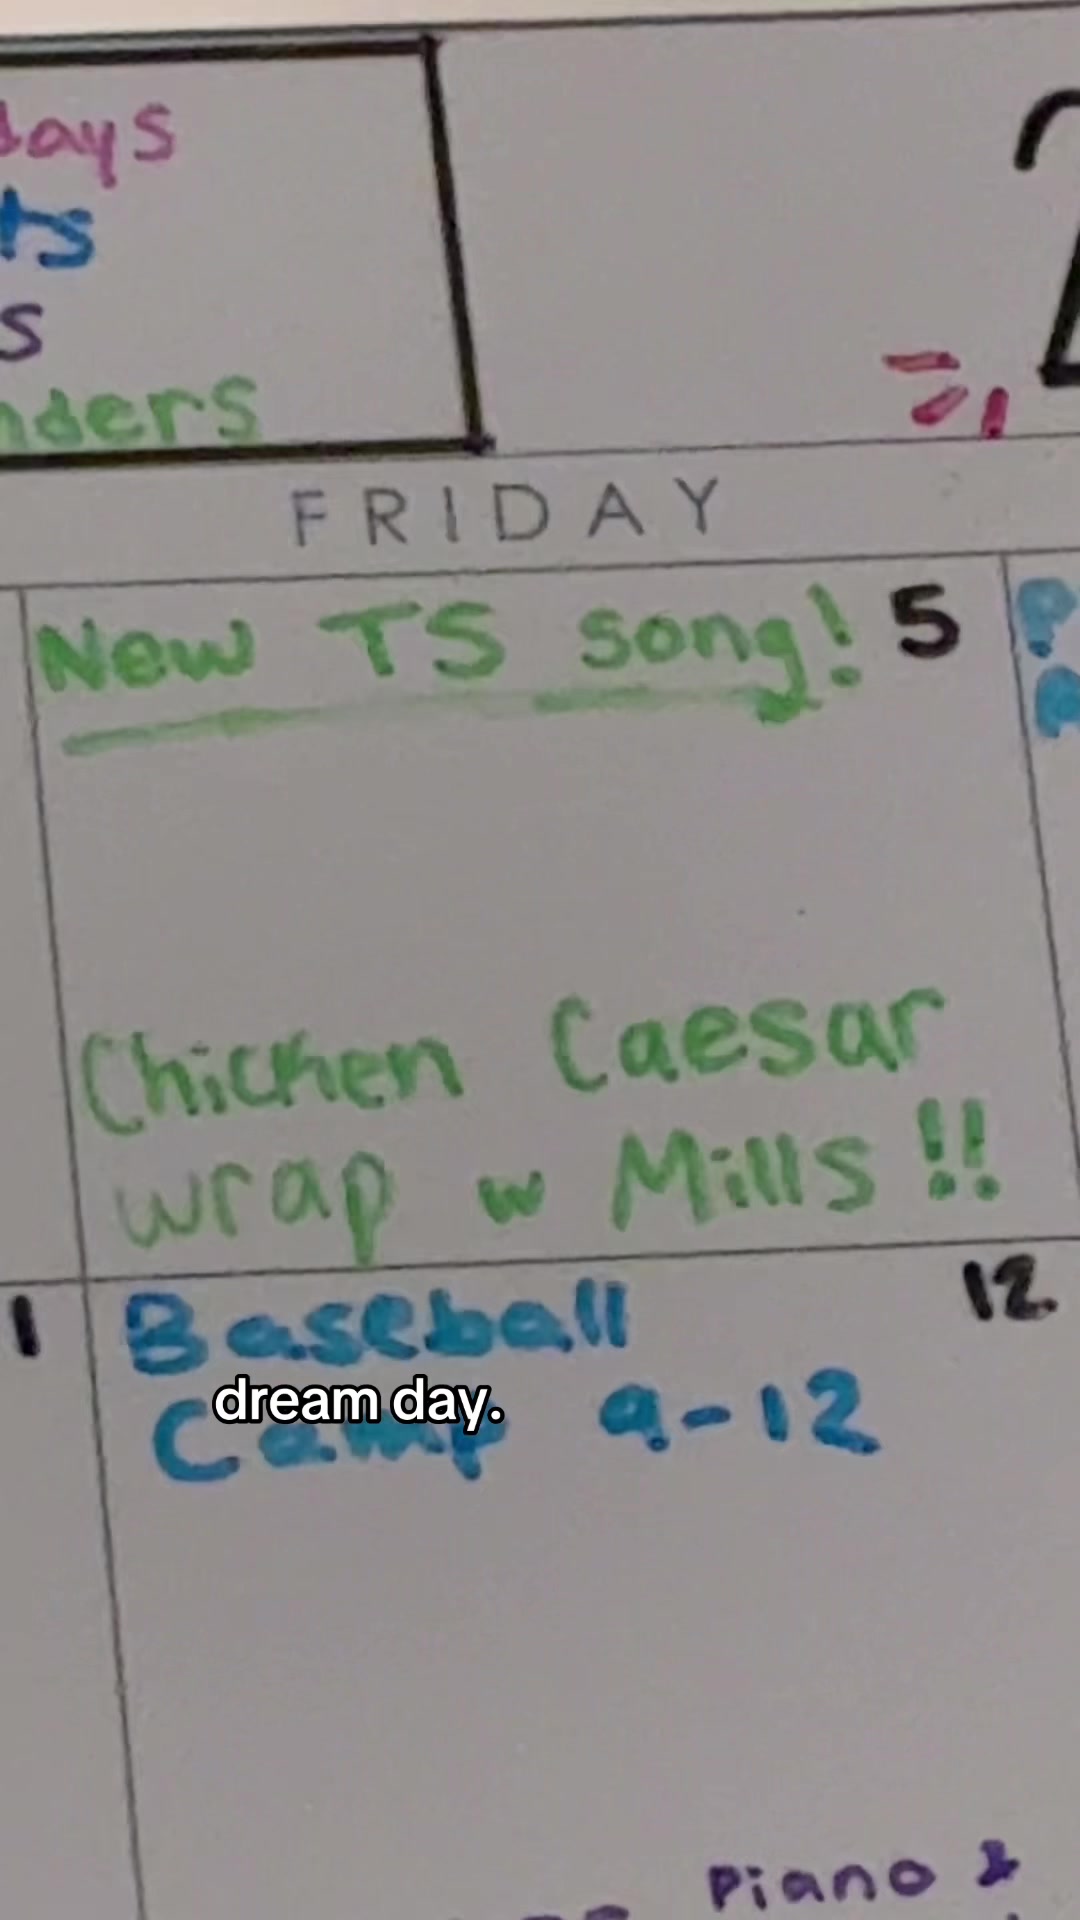 days
ts
s
nders
2
FRIDAY
New TS song! 5
Chicken Caesar
wrap w Mills !!
1
Baseball 12
Camp 9-12
dream day.
Piano &